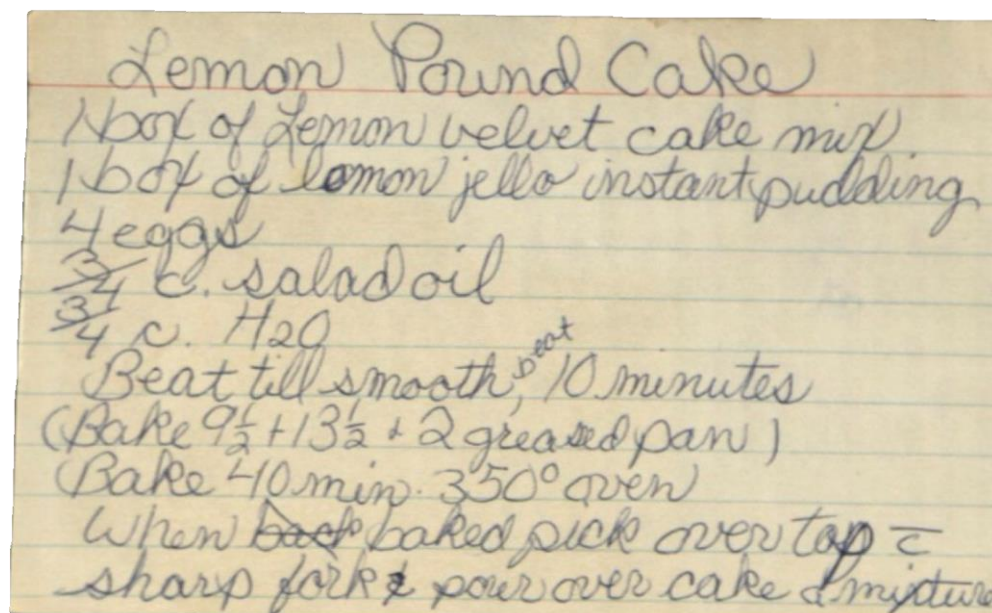 Lemon Pound Cake
1 box of Lemon velvet cake mix.
1 box of lemon jello instant pudding
4 eggs
3/4 c. salad oil
3/4 c. H2O
Beat till smooth, beat 10 minutes
(Bake 9 1/2 + 13 1/2 + 2 greased pan)
(Bake 40 min. 350° oven
When back baked pick over top c̄
sharp fork & pour over cake & mixture